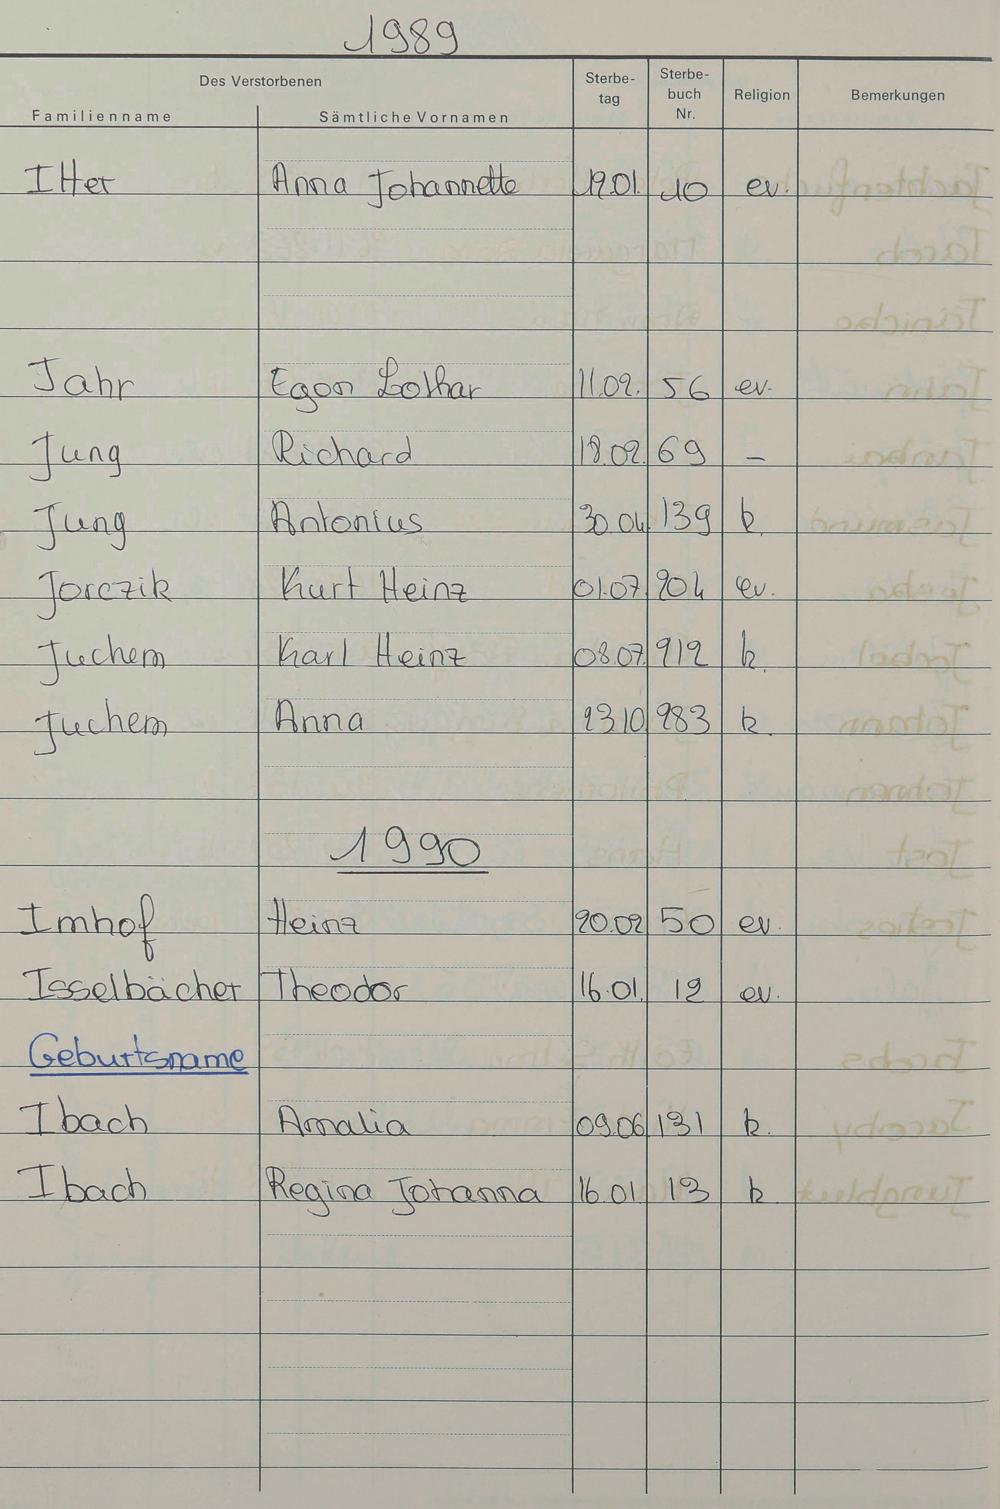 1989
Des Verstorbenen
Familienname Sämtliche Vornamen Sterbe-tag Sterbe-buch Nr. Religion Bemerkungen
Itter Anna Johannette 12.01. 10 ev.
Jahr Egon Lothar 11.02. 56 ev.
Jung Richard 18.02. 69 –
Jung Antonius 30.04 139 k.
Jorczik Kurt Heinz 01.07. 204 ev.
Juchem Karl Heinz 08.07. 212 k.
Juchem Anna 23.10. 283 k.
1990
Imhof Heinz 20.02 50 ev.
Isselbächer Theodor 16.01. 12 ev.
Geburtsname
Ibach Amalia 09.06. 131 k.
Ibach Regina Johanna 16.01. 13 k.